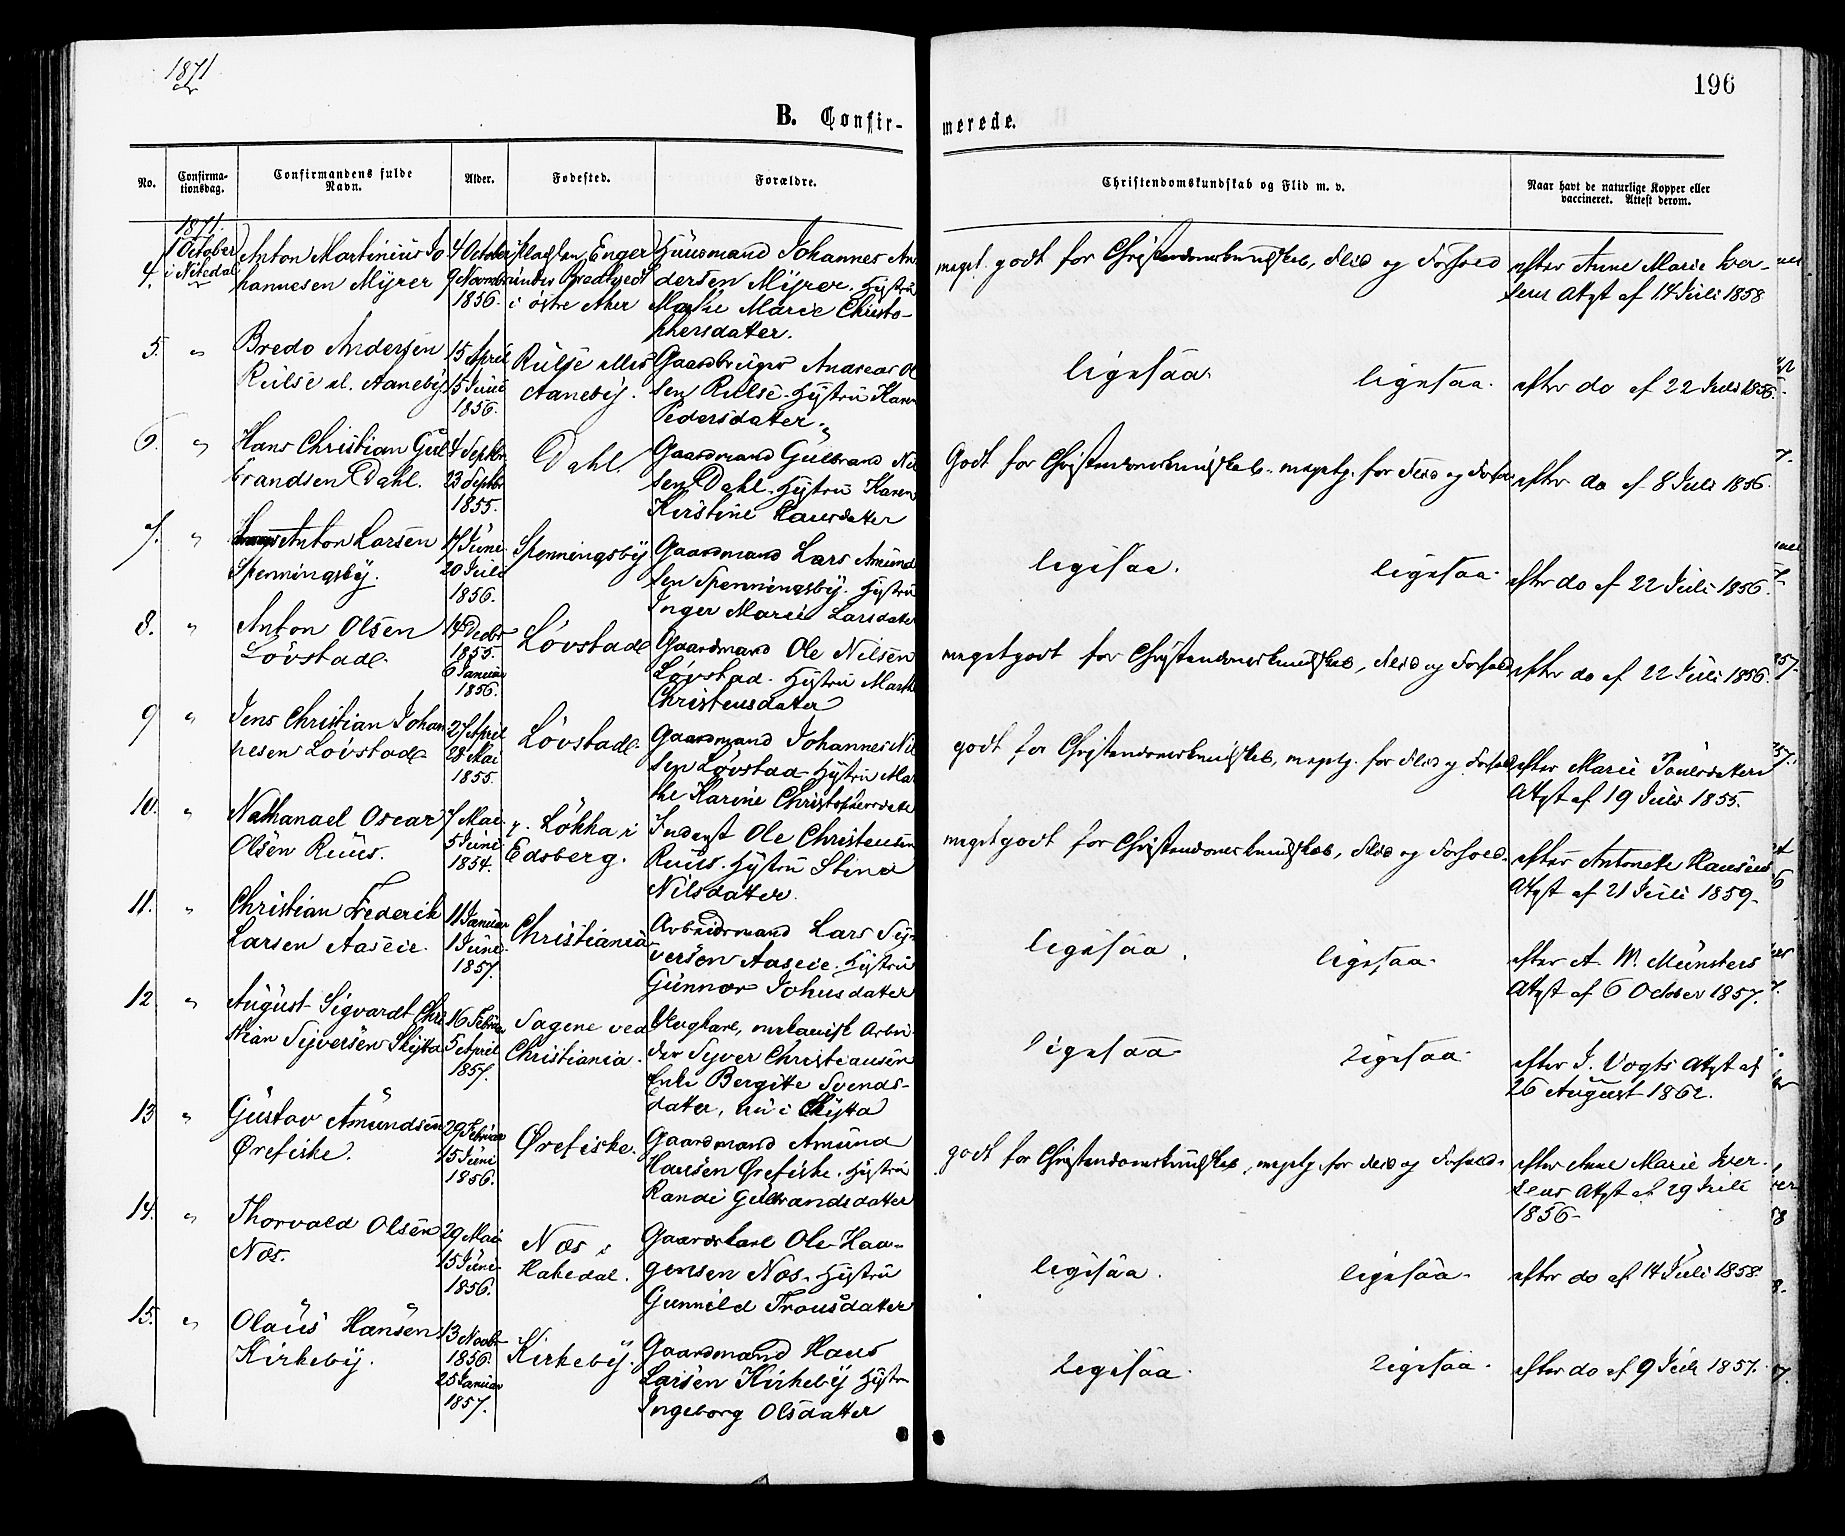 1871
196
B. Confir-
merede.
No.
Confirma-
tionsdag.
Confirmandens fulde
Navn.
Alder.
Fødested.
Forældre.
Christendomskundskab og Flid m. v.
Naar havt de naturlige Kopper eller
vaccineret. Attest derom.
1871.
4.
1 October
i Nitedal
Anton Martinius Jo
hannesen Myrer
4 October
9 Novmbr
1856.
Pladsen Enger
under Bredtvedt
i østre Aker
Huusmand Johannes An
dersen Myrer. Hustru
Marthe Marie Christo-
phersdatter.
meget godt for Christendomskundskab, Flid og Forhold
efter Anne Marie Iver-
sens Attst af 14 Juli 1858
5.
"
Bredo Andersen
Rulse el. Aaneby
15 April
15 Juni
1856.
Rulse eller
Aaneby.
Gaardbruger Andreas Ol
sen Rulse. Hustru Karen
Pedersdatter.
ligesaa.
ligesaa.
efter do af 22 Juli 1856.
6.
"
Hans Christian Gul
brandsen Dahl.
4 Septbr
23 Septbr
1855.
Dahl
Gaardmand Gulbrand Nil
sen Dahl. Hustru Karen
Kirstine Hansdatter
Godt for Christendomskundskab. megetg. for Flid og Forhold
efter do af 8 Juli 1856.
7.
"
Anton Larsen
Spenningsby.
17 Juni
20 Juli
1856.
Spenningsby
Gaardmand Lars Amund
sen Spenningsby. Hustru
Inger Marie Larsdatter
ligesaa.
ligesaa.
efter do af 22 Juli 1856.
8.
"
Anton Olsen
Løvstad.
14 Decbr
1855.
6 Januar
1856.
Løvstad
Gaardmand Ole Nilsen
Løvstad. Hustru Marthe
Christensdatter
meget godt for Christendomskundskab, Flid og Forhold
efter do af 22 Juli 1856.
9
"
Jens Christian Johan
nesen Løvstad
27 April
28 Mai
1855.
Løvstad.
Gaardmand Johannes Nil
sen Løvstad Hustru Mar
the Karine Christophersdatter
godt for Christendomskundskab, megetg. for Flid og Forhold
efter Marie Poulsdatters
Attst af 19 Juli 1855.
10.
"
Nathanael Oscar
Olsen Ruus.
7 Mai
5 Juni
1854.
Løkka i
Edsberg.
Inderst Ole Christensen
Ruus. Hustru Stine
Nilsdatter.
meget godt for Christendomskundskab, Flid og Forhold.
efter Antonette Hansens
Attst af 21 Juli 1859.
11.
"
Christian Frederik
Larsen Aaseie.
11 Januar
1 Juni
1857.
Christiania
Arbeidsmand Lars Sy-
versen Aaseie. Hustru
Gunnor Johnsdatter
ligesaa.
ligesaa.
efter A W. Münsters
Attst af 6 October 1857.
12.
"
August Sigvardt Chri
stian Syversen Skytta
16 Februar
5 April
1857.
Sagene ved
Christiania.
Ungkarl, mekanisk Arbei
der Syver Christiansen
Enke Bergitte Svends-
datter, nu i Skytta
ligesaa
ligesaa.
efter J. Vogts Attst af
26 August 1862.
13
"
Gustav Amundsen
Ørefiske.
29 Februar
15 Juni
1856.
Ørefiske.
Gaardmand Amund
Hansen Ørefiske. Hustru
Randi Gulbrandsdatter
godt for Christendomskundskab, megetg. for Flid og Forhold.
efter Anne Marie Iver-
sens Attst af 29 Juli
1856.
14.
"
Thorvald Olsen
Næs.
29 Mai
15 Juni
1856.
Næs i
Hakedal.
Gaardkarl Ole Haa-
gensen Næs. Hustru
Gunnild Tronsdatter
ligesaa.
ligesaa.
efter do af 14 Juli 1858.
15.
"
Olaus Hansen
Kirkeby.
13 Novbr
1856.
25 Januar
1857.
Kirkeby.
Gaardmand Hans
Larsen Kirkeby Hustru
Ingeborg Olsdatter
Ligesaa.
ligesaa.
efter do af 9 Juli 1857.